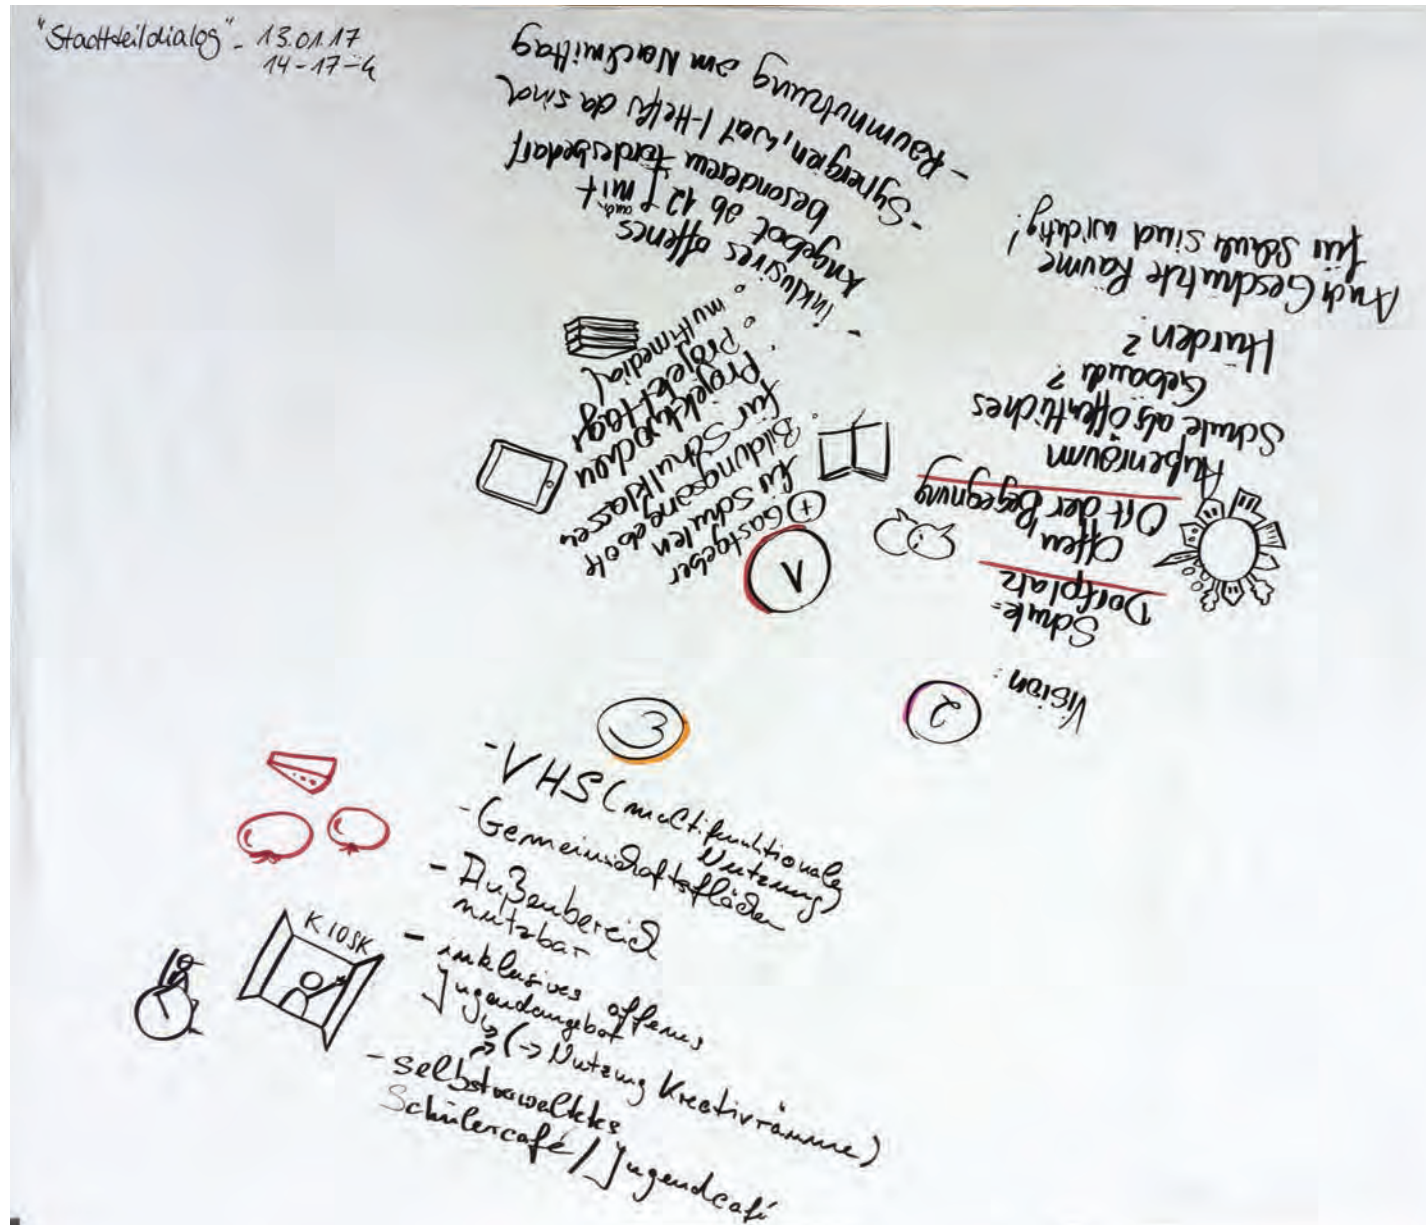 "Stadtteildialog" - 13.01.17
14-17-h
1
+ Gastgeber
für Schulen
Bildungsangebote
für Schulklassen
Projektwochen
Projekttage
multimedial
- inklusives offenes
Angebot ab 12 J auch mit
besonderem Förderbedarf
- Synergien, weil I-Helfer da sind
- Raumnutzung am Nachmittag
2
Vision:
Schule =
Dorfplatz
Offen
Ort der Begegnung
Außenraum
Schule als öffentliches
Gebäude?
Hürden?
Auch Geschützte Räume
für Schule sind wichtig!
3
- VHS (multifunktionale
Nutzung)
- Gemeinschaftsflächen
- Außenbereich
nutzbar
- inklusives offenes
Jugendangebot
(-> Nutzung Kreativräume)
- selbstverwaltetes
Schülercafé / Jugendcafé
KIOSK